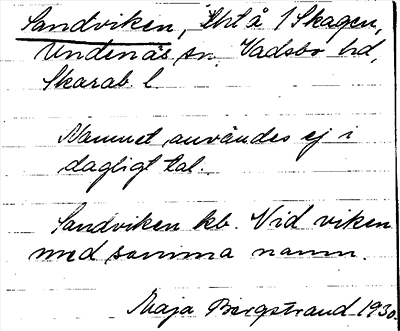 Sandviken, Lht å 1 Skagen,
Undenäs sn, Vadsbo hd,
Skarab. l.
Namnet användes ej i
dagligt tal.
Sandviken kb. Vid viken
med samma namn.
Maja Bergstrand 1930.